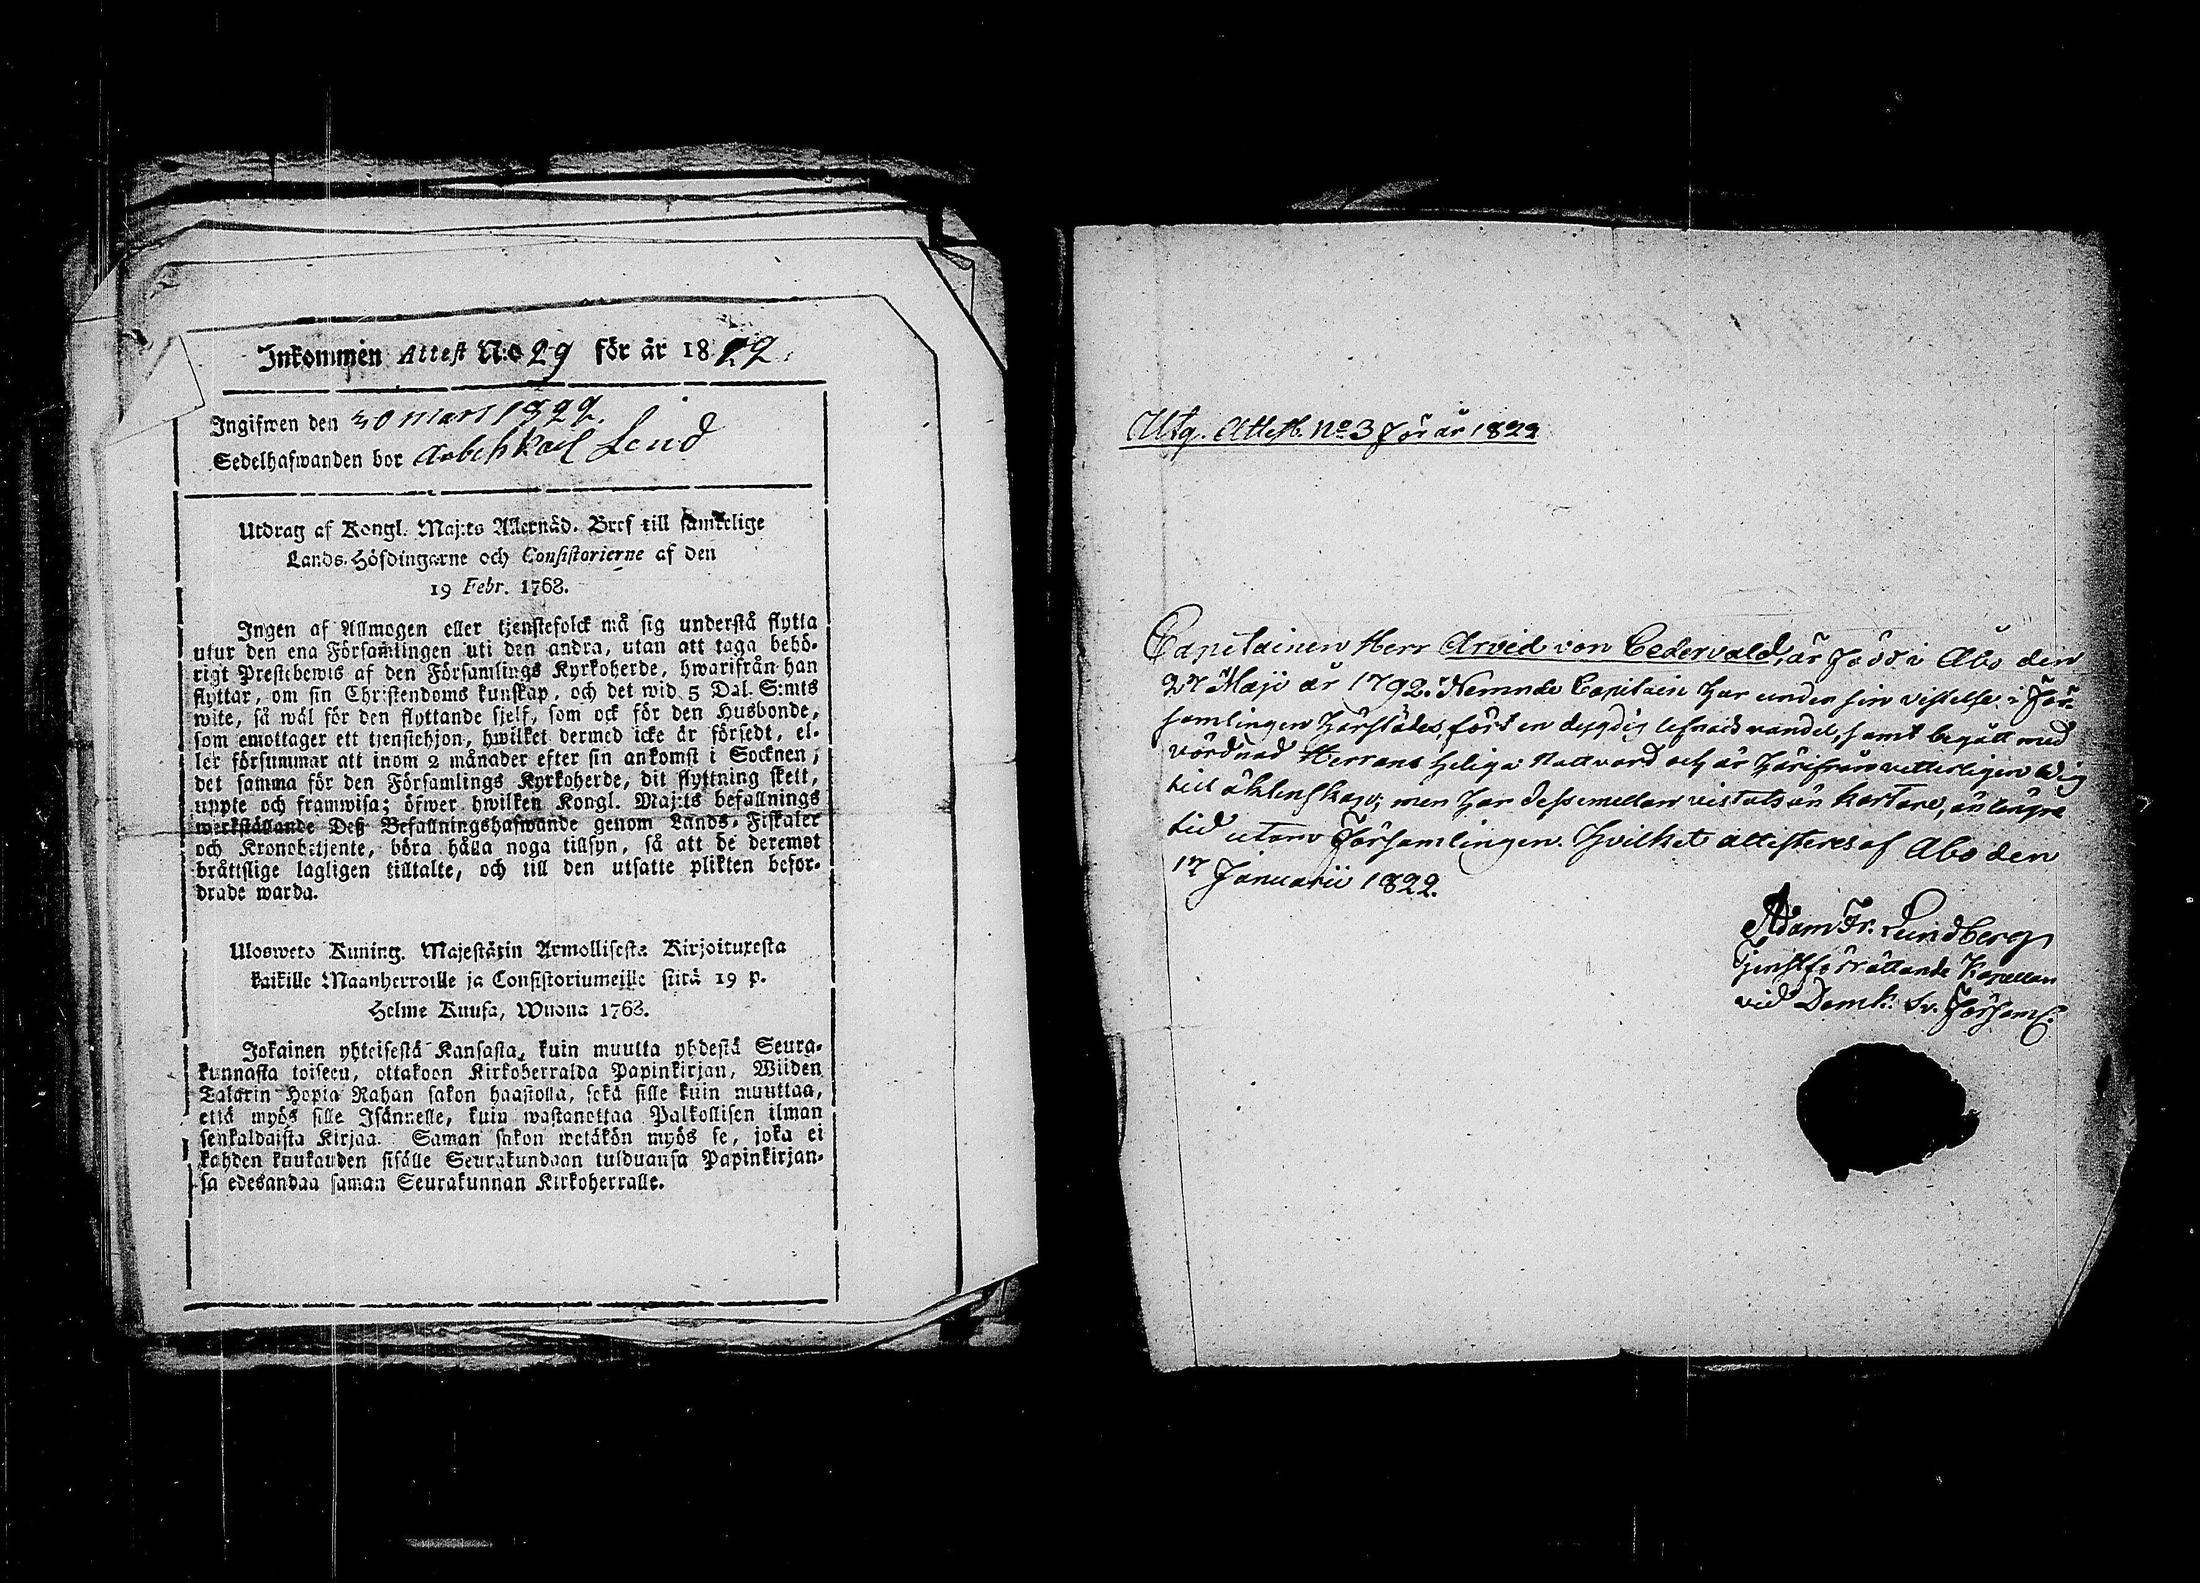 Inkommen Attest N:o 29 för år 1822.
Ingifwen den 30 mars 1822.
Sedelhafwanden bor
Utdrag af Kongl. Maj:ts Allernåd. Bref till samtelige
Lands-Höfdingarne och Consistorierne af den
19 Febr. 1768.
Ingen af Allmogen eller tjenstefolck må sig understå flytta
utur den ena Församlingen uti den andra, utan att taga behö-
rigt Prestebewis af den Församlings Kyrkoherde, hwarifrån han
flyttar, om sin Christendoms kunskap, och det wid 5 Dal. S:mts
wite, så wäl för den flyttande sjelf, som ock för den Husbonde,
som emottager ett tjenstehjon, hwilket dermed icke är försedt, el-
ler försummar att inom 2 månader efter sin ankomst i Socknen,
det samma för den Församlings Kyrkoherde, dit flyttning skett,
uppte och framwisa; öfwer hwilken Kongl. Maj:ts befallnings
werkställande Deß Befallningshafwande genom Lands-Fiskaler
och Kronobetjente, böra hålla noga tillsyn, så att de deremot
bråttslige lagligen tilltalte, och till den utsatte plikten befor-
drade warda.
Ulosweto Kuning. Majestätin Armollisesta Kirjoituxesta
kaikille Maanherroille ja Consistoriumeille siitä 19 p.
Helme Kuusa, Wuona 1768.
Jokainen yhteisestä Kansasta, kuin muutta yhdestä Seura-
kunnasta toiseen, ottakoon Kirkoherralda Papinkirjan, Wiiden
Talarin Hopia Rahan sakon haastolla, sekä sille kuin muuttaa,
että myös sille Isännelle, kuin wastanottaa Palkollisen ilman
senkaldaista Kirjaa. Saman sakon wetäkön myös se, joka ei
kahden kuukauden sisälle Seurakundaan tulduansa Papinkirjan-
sa edesandaa saman Seurakunnan Kirkoherralle.
Utg. Attest. No 3 för år 1822
Capitainen Herr Arvid von Cedervald, är född i Åbo den
27 Maji år 1792. Nemnde Capitain har under sin vistelse i För-
samlingen härstädes, fört en dygdig lefnads vandel, samt begått med
vördnad Herrans Heliga Nattvard och är härifrån vetterligen ledig
till äktenskap; men har dessemellan vistats än kortare, än längre
tid utom Församlingen. Hvilket attesteras af Åbo den
17 Januarii 1822.
Adam Fr. Lundberg
Tjenstförrättande Kapellan
vid Domk. Sv. Förşaml.